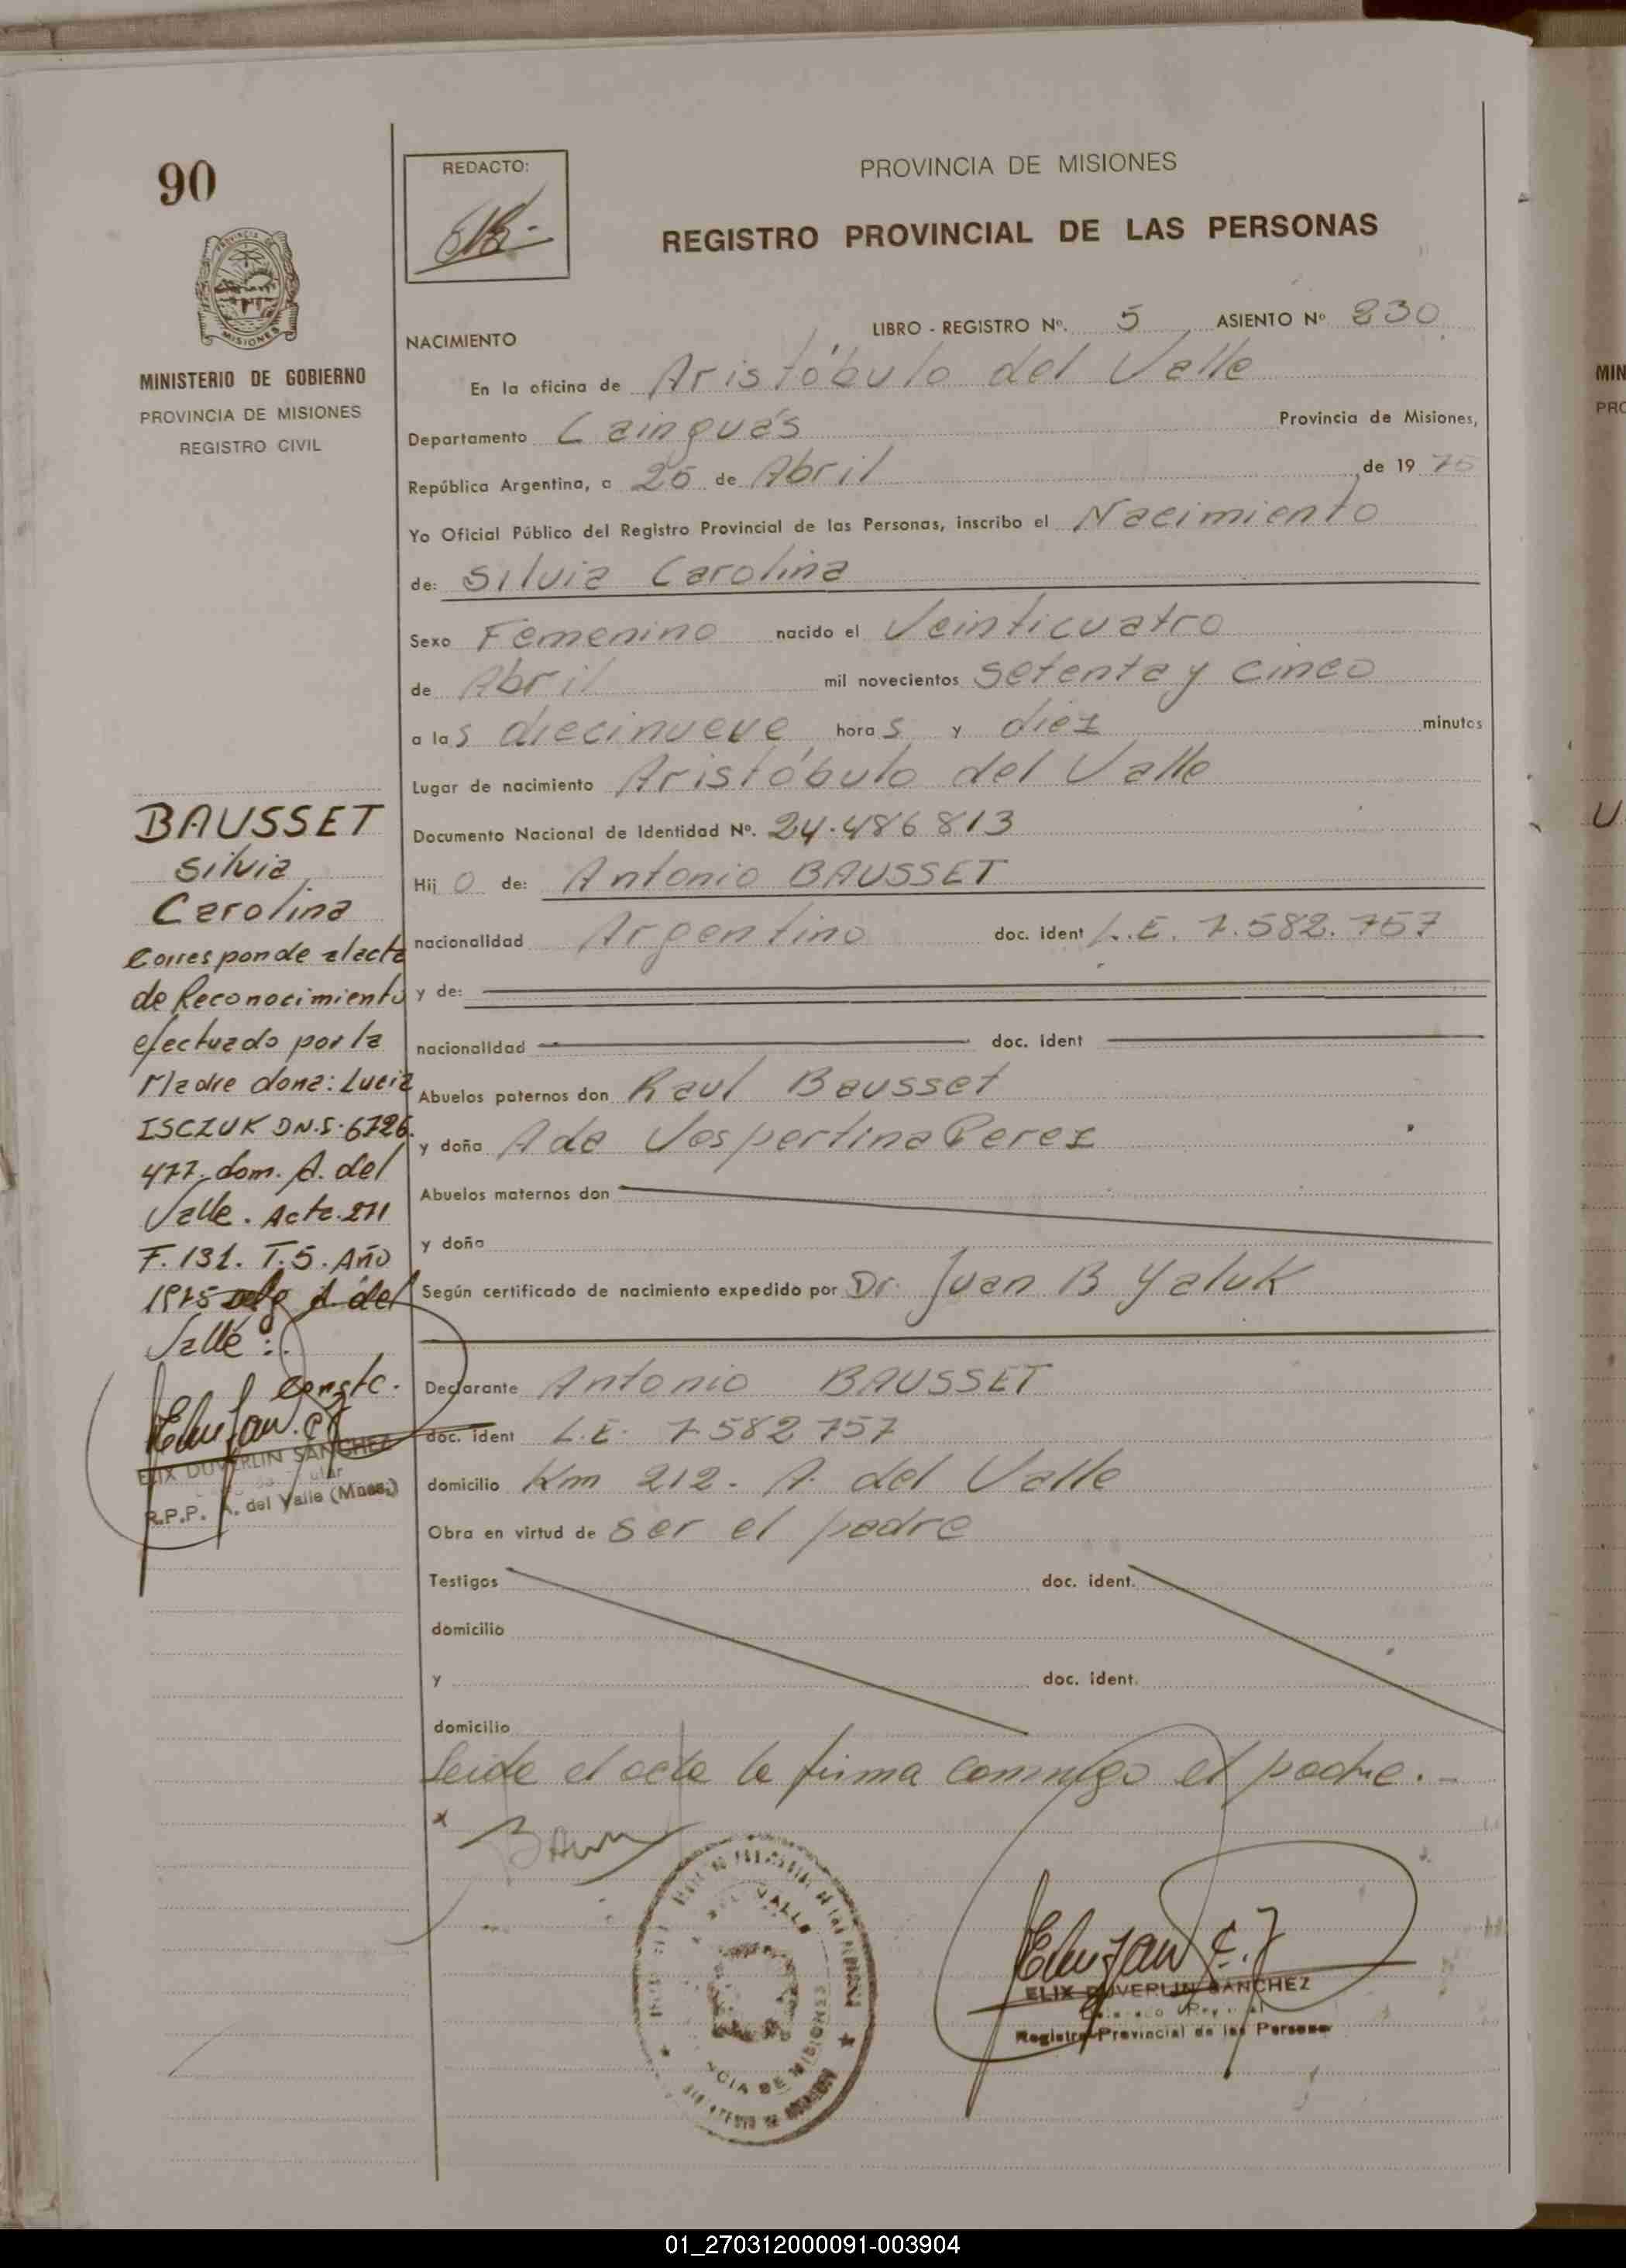 90
PROVINCIA DE MISIONES
MINISTERIO DE GOBIERNO
PROVINCIA DE MISIONES
REGISTRO CIVIL
BAUSSET
Silvia
Carolina
Corresponde al acta
de Reconocimiento
efectuado por la
Madre doña: Lucia
ISCZUK DN.I. 6726.
477. dom. A. del
Valle. Acta. 271
F. 131. T. 5. Año
1975 A. del
Valle:
Conste.
ELIX DUVERLIN SANCHEZ
R.P.P. A. del Valle (Mnes.)
REDACTO:
PROVINCIA DE MISIONES
REGISTRO PROVINCIAL DE LAS PERSONAS
NACIMIENTO
LIBRO - REGISTRO Nº. 5 ASIENTO Nº 230
En la oficina de Aristóbulo del Valle
Departamento Cainguás Provincia de Misiones,
República Argentina, a 25 de Abril de 19 75
Yo Oficial Público del Registro Provincial de las Personas, inscribo el Nacimiento
de: Silvia Carolina
Sexo Femenino nacido el Veinticuatro
de Abril mil novecientos setenta y cinco
a las diecinueve horas y diez minutos
Lugar de nacimiento Aristóbulo del Valle
Documento Nacional de Identidad Nº. 24.486813
Hij o de: Antonio BAUSSET
nacionalidad Argentino doc. ident L.E. 7.582.757
y de:
nacionalidad doc. ident
Abuelos paternos don Raul Bausset
y doña Ada Vespertina Perez
Abuelos maternos don
y doña
Según certificado de nacimiento expedido por Dr. Juan B Yaluk
Declarante Antonio BAUSSET
doc. ident L.E. 7.582 757
domicilio Km 212 - A. del Valle
Obra en virtud de ser el padre
Testigos doc. ident.
domicilio
y doc. ident.
domicilio
Leida el acta la firma conmigo el padre.-
VALLE
CIA DE MISIONES
ELIX DUVERLIN SANCHEZ
Registro Provincial de las Personas
01_270312000091-003904